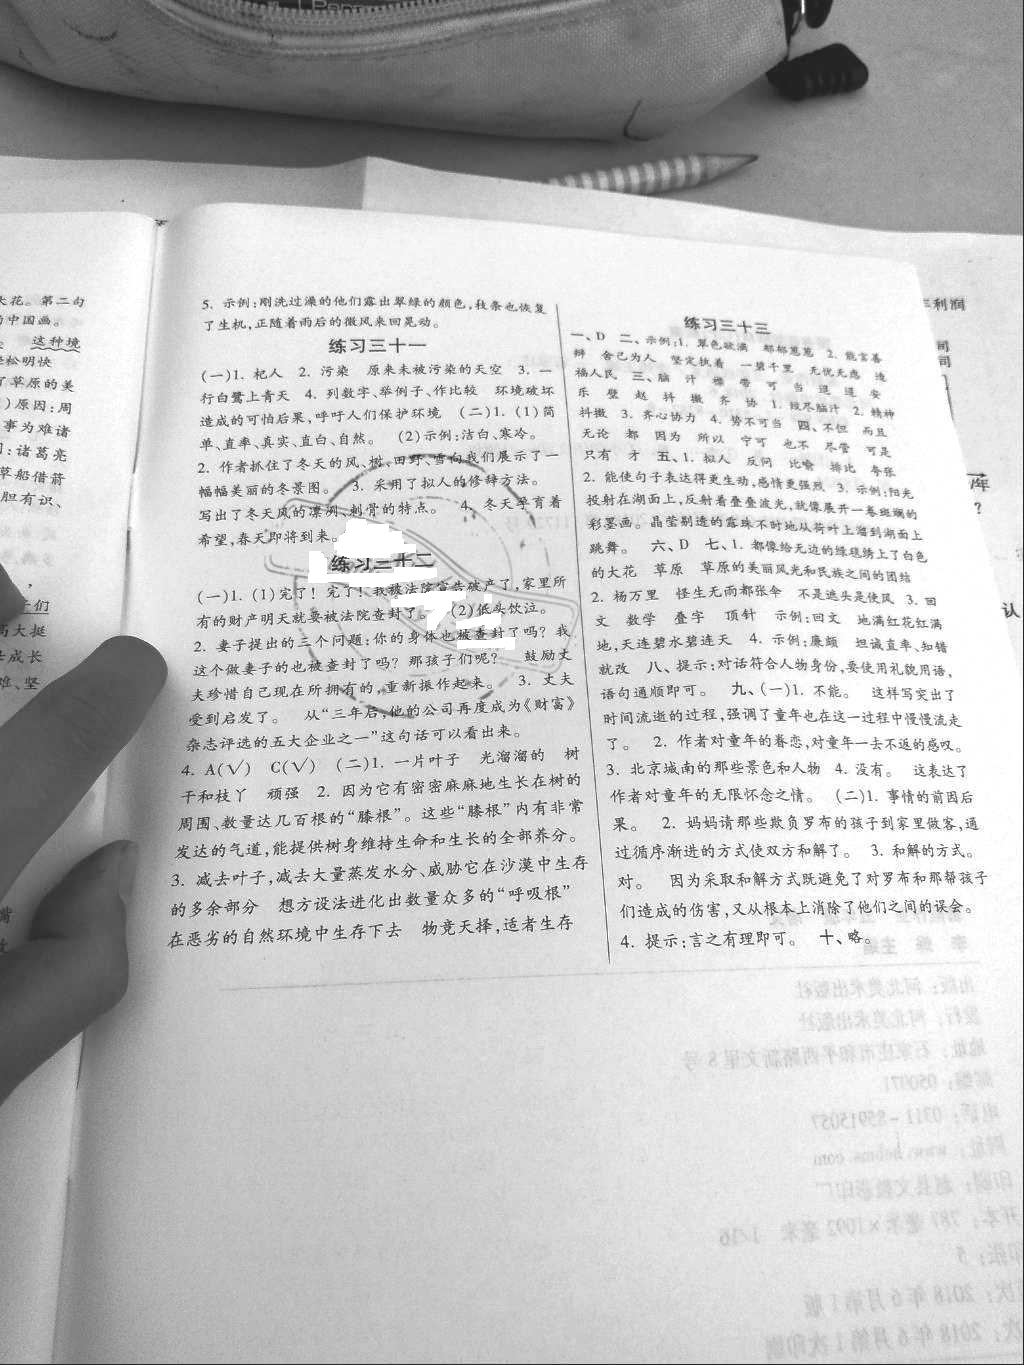 大花。第二句
的中国画。
这种境
轻松明快
了草原的美
原因:周
事为难诸
:诸葛亮
草船借箭
胆有识、
子们
高大挺
成长
难、坚
5. 示例:刚洗过澡的他们露出翠绿的颜色,枝条也恢复
了生机,正随着雨后的微风来回晃动。
练习三十一
(一)1. 杞人 2. 污染 原来未被污染的天空 3. 一
行白鹭上青天 4. 列数字、举例子、作比较 环境破坏
造成的可怕后果,呼吁人们保护环境 (二)1. (1)简
单、直率、真实、直白、自然。 (2)示例:洁白、寒冷。
2. 作者抓住了冬天的风、树、田野、雪向我们展示了一
幅幅美丽的冬景图。 3. 采用了拟人的修辞方法。
写出了冬天风的凛冽、刺骨的特点。 4. 冬天孕育着
希望,春天即将到来。
练习三十二
(一)1. (1)完了!完了!我被法院宣告破产了,家里所
有的财产明天就要被法院查封了。 (2)低头饮泣。
2. 妻子提出的三个问题:你的身体也被查封了吗?我
这个做妻子的也被查封了吗?那孩子们呢? 鼓励丈
夫珍惜自己现在所拥有的,重新振作起来。 3. 丈夫
受到启发了。 从“三年后,他的公司再度成为《财富》
杂志评选的五大企业之一”这句话可以看出来。
4. A(√) C(√) (二)1. 一片叶子 光溜溜的 树
干和枝丫 顽强 2. 因为它有密密麻麻地生长在树的
周围、数量达几百根的“膝根”。这些“膝根”内有非常
发达的气道,能提供树身维持生命和生长的全部养分。
3. 减去叶子,减去大量蒸发水分、威胁它在沙漠中生存
的多余部分 想方设法进化出数量众多的“呼吸根”
在恶劣的自然环境中生存下去 物竞天择,适者生存
练习三十三
一、D 二、示例:1. 翠色欲滴 郁郁葱葱 2. 能言善
辩 舍己为人 坚定执着 一碧千里 无忧无虑 造
福人民 三、脑 汁 襟 带 可 当 逗 逗 安
乐 璧 赵 抖 擞 齐 协 1. 绞尽脑汁 2. 精神
抖擞 3. 齐心协力 4. 势不可当 四、不但 而且
无论 都 因为 所以 宁可 也不 尽管 可是
只有 才 五、1. 拟人 反问 比喻 排比 夸张
2. 能使句子表达得更生动,感情更强烈 3. 示例:阳光
投射在湖面上,反射着叠叠波光,就像展开一卷斑斓的
彩墨画。晶莹剔透的露珠不时地从荷叶上溜到湖面上
跳舞。 六、D 七、1. 都像给无边的绿毯绣上了白色
的大花 草原 草原的美丽风光和民族之间的团结
2. 杨万里 怪生无雨都张伞 不是遮头是使风 3. 回
文 数学 叠字 顶针 示例:回文 地满红花红满
地,天连碧水碧连天 4. 示例:廉颇 坦诚直率、知错
就改 八、提示:对话符合人物身份,要使用礼貌用语,
语句通顺即可。 九、(一)1. 不能。 这样写突出了
时间流逝的过程,强调了童年也在这一过程中慢慢流走
了。 2. 作者对童年的眷恋,对童年一去不返的感叹。
3. 北京城南的那些景色和人物 4. 没有。 这表达了
作者对童年的无限怀念之情。 (二)1. 事情的前因后
果。 2. 妈妈请那些欺负罗布的孩子到家里做客,通
过循序渐进的方式使双方和解了。 3. 和解的方式。
对。 因为采取和解方式既避免了对罗布和那帮孩子
们造成的伤害,又从根本上消除了他们之间的误会。
4. 提示:言之有理即可。 十、略。
年利润
司
司
认